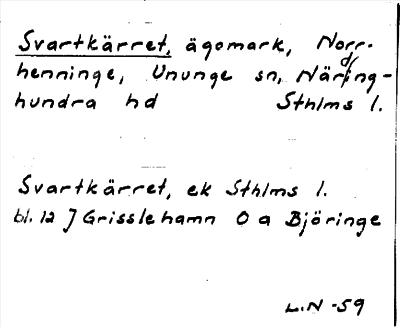 Svartkärret, ägomark, Norr-
henninge, Ununge sn, Närding-
hundra hd Sthlms l.
Svartkärret, ek Sthlms l.
bl. 12 J Grisslehamn O a Björinge
L.N -59